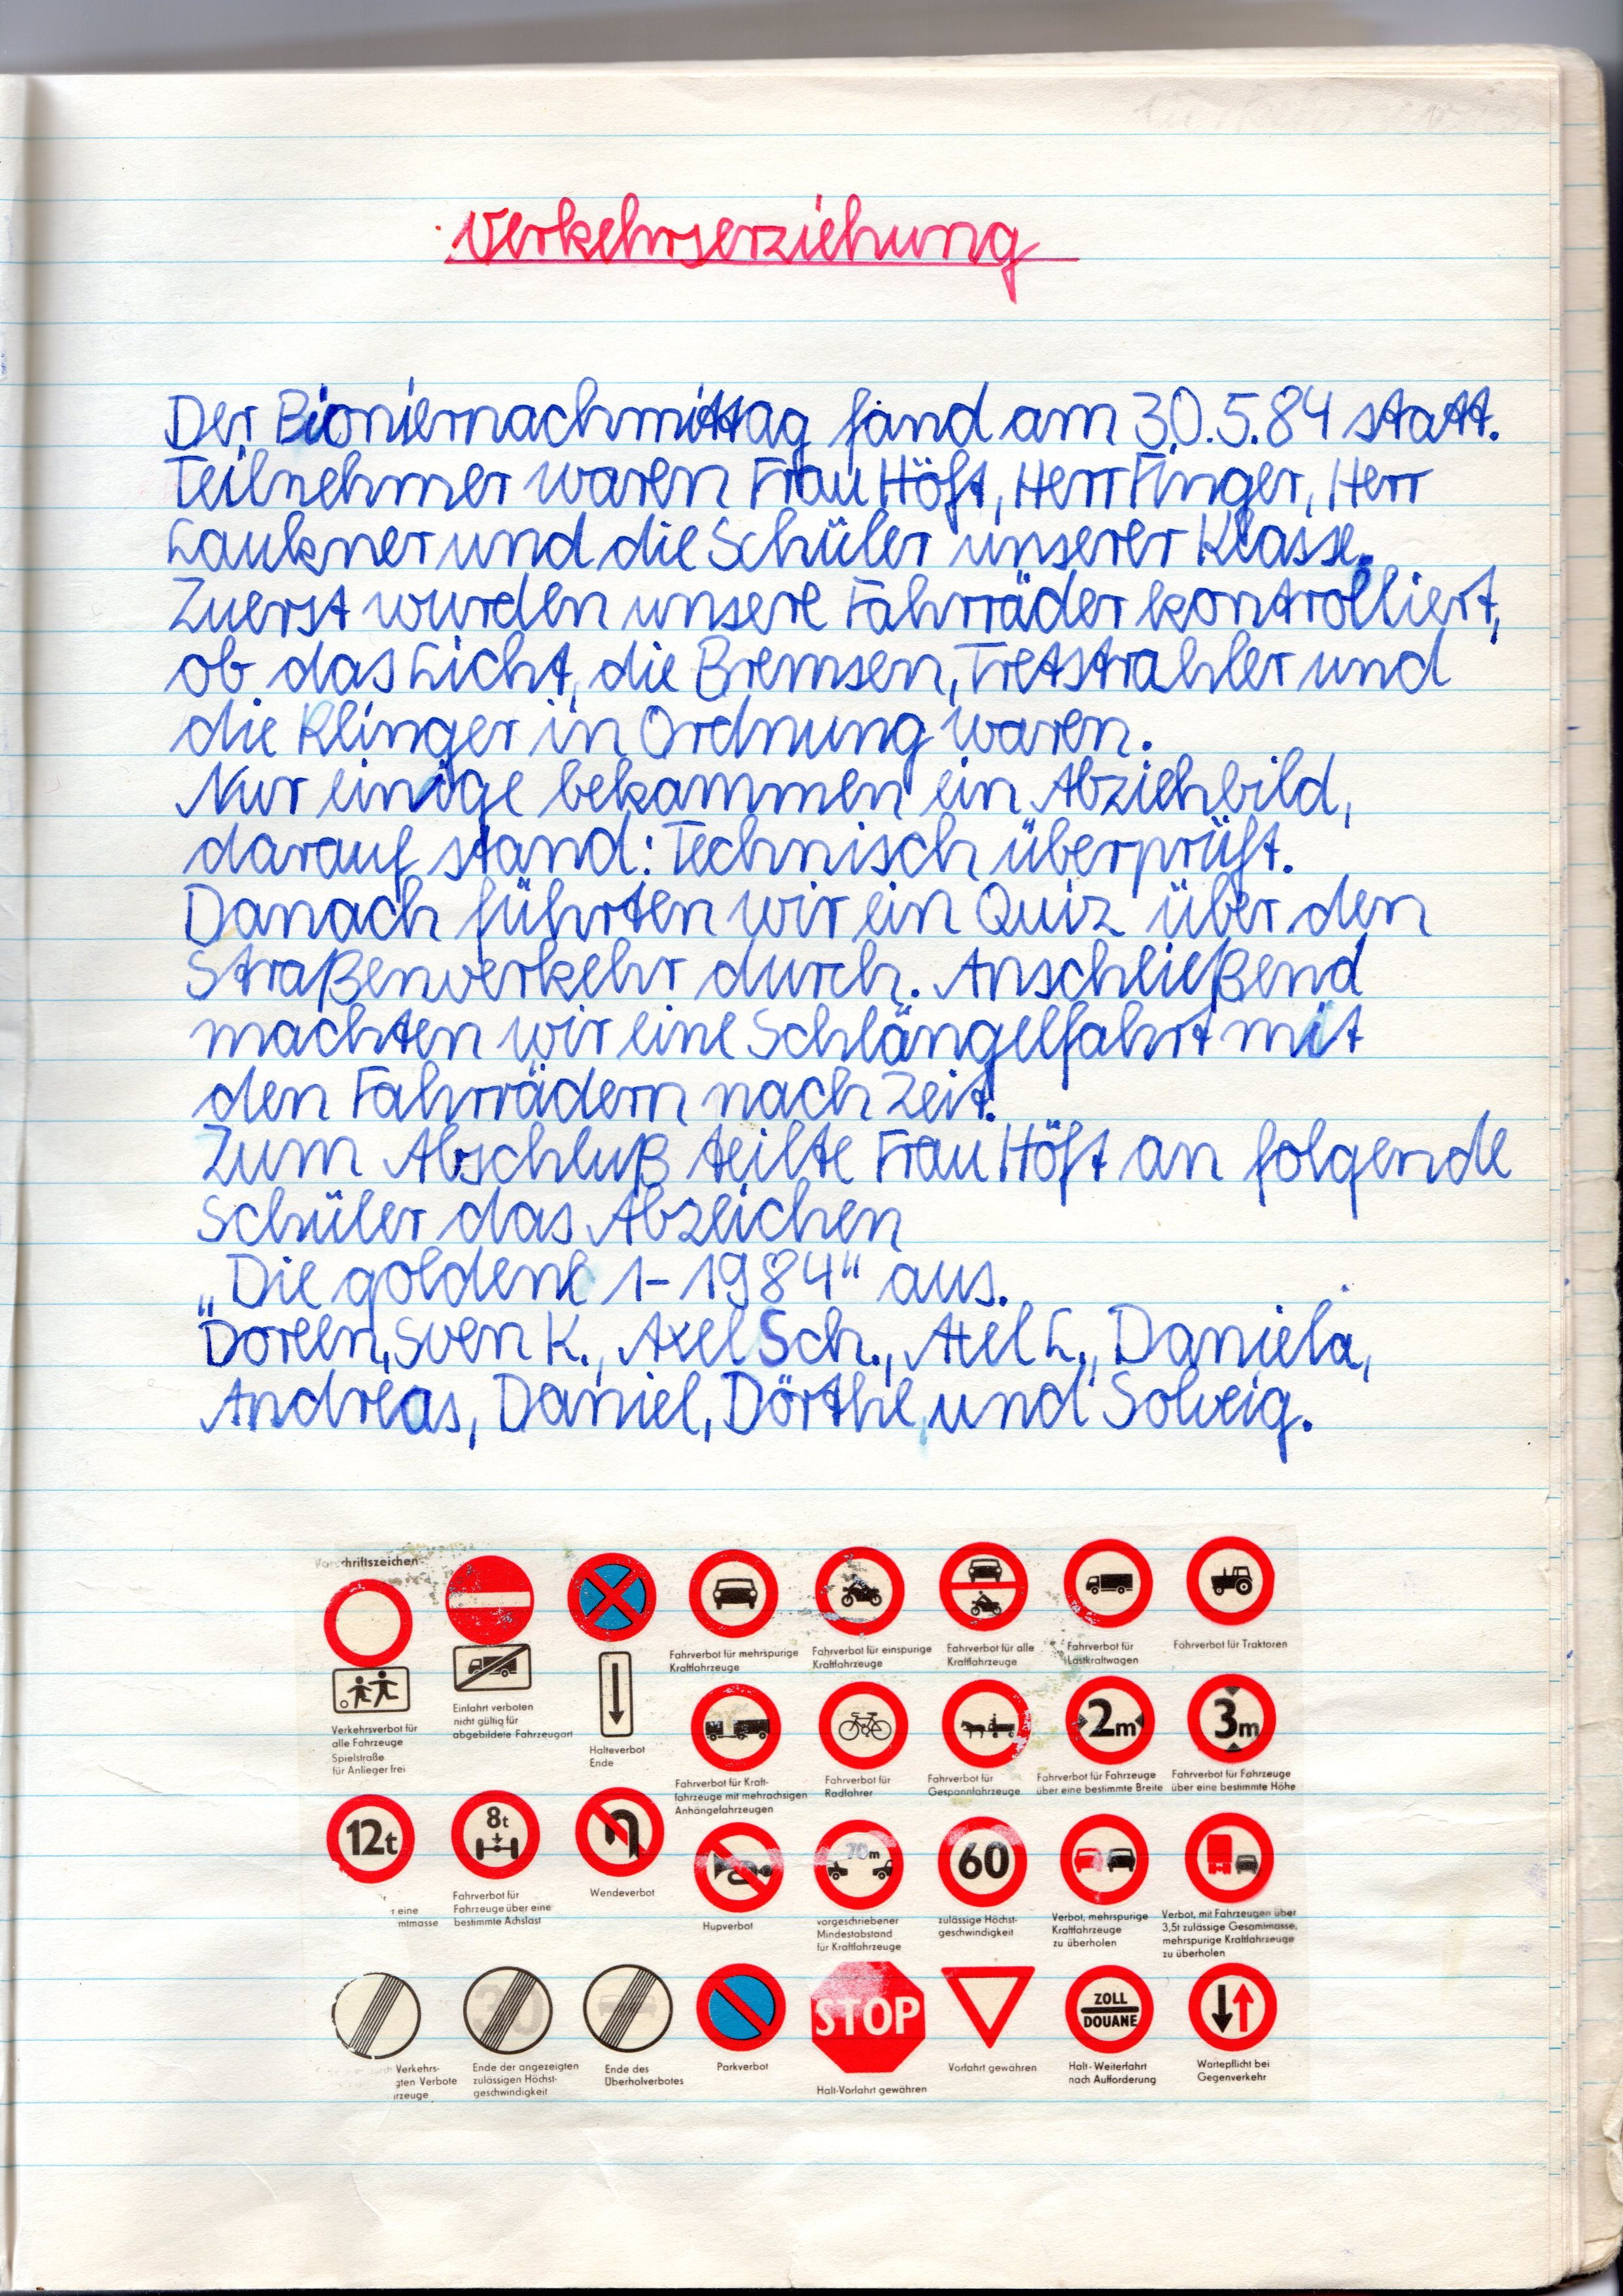 Verkehrserziehung
Der Bioniernachmittag fand am 30.5.84 statt.
Teilnehmer waren Frau Höft, Herr Finger, Herr
Laukner und die Schüler unserer Klasse.
Zuerst wurden unsere Fahrräder kontrolliert,
ob das Licht, die Bremsen, Tretstrahler und
die Klinger in Ordnung waren.
Nur einige bekammen ein Abziehbild,
darauf stand: Technisch überprüft.
Danach führten wir ein Quiz über den
Straßenverkehr durch. Anschließend
machten wir eine Schlängelfahrt mit
den Fahrrädern nach Zeit.
Zum Abschluß teilte Frau Höft an folgende
Schüler das Abzeichen
„Die goldene 1-1984“ aus.
Doreen, Sven K., Axel Sch., Axel L., Daniela,
Andreas, Daniel, Dörthe und Solveig.
chriftszeichen
Verkehrsverbot für
alle Fahrzeuge
Spielstraße
für Anlieger frei
Einfahrt verboten
nicht gültig für
abgebildete Fahrzeugart
Halteverbot
Ende
Fahrverbot für mehrspurige
Kraftfahrzeuge
Fahrverbot für einspurige
Kraftfahrzeuge
Fahrverbot für alle
Kraftfahrzeuge
Fahrverbot für
Lastkraftwagen
Fahrverbot für Traktoren
2m
3m
Fahrverbot für Kraft-
fahrzeuge mit mehrachsigen
Anhängefahrzeugen
Fahrverbot für
Radfahrer
Fahrverbot für
Gespannfahrzeuge
Fahrverbot für Fahrzeuge
über eine bestimmte Breite
Fahrverbot für Fahrzeuge
über eine bestimmte Höhe
12t
8t
70m
60
r eine
mtmasse
Fahrverbot für
Fahrzeuge über eine
bestimmte Achslast
Wendeverbot
Hupverbot
vorgeschriebener
Mindestabstand
für Kraftfahrzeuge
zulässige Höchst-
geschwindigkeit
Verbot, mehrspurige
Kraftfahrzeuge
zu überholen
Verbot, mit Fahrzeugen über
3,5t zulässige Gesamtmasse,
mehrspurige Kraftfahrzeuge
zu überholen
30
STOP
ZOLL
DOUANE
Verkehrs-
gten Verbote
rzeuge
Ende der angezeigten
zulässigen Höchst-
geschwindigkeit
Ende des
Überholverbotes
Parkverbot
Halt-Vorfahrt gewähren
Vorfahrt gewähren
Halt-Weiterfahrt
nach Aufforderung
Wartepflicht bei
Gegenverkehr